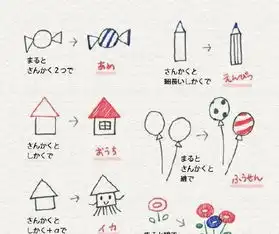 まると
さんかく２つで
あめ
さんかくと
細長いしかくで
えんぴつ
さんかくと
しかくで
おうち
まると
さんかくと
線で
ふうせん
さんかくと
しかく＋αで
イカ